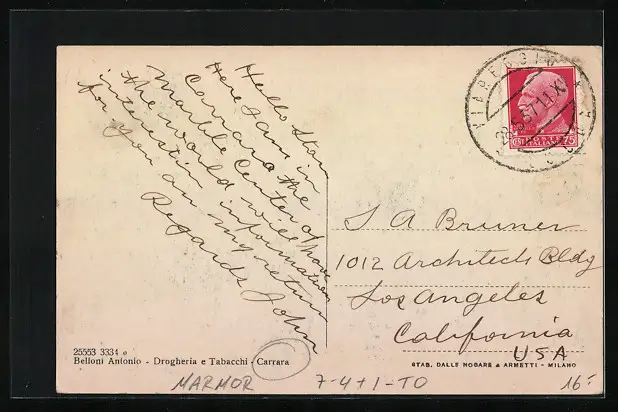 Hello Stan
Here I am in
Carrara the
marble center of
the world will have
interestin information
for you on my return
Regards John
S A Bruner
1012 Architech Bldg
Los Angeles
California
USA
VIAREGGIO
POSTE ITALIANE
75
25553 3334
Belloni Antonio - Drogheria e Tabacchi - Carrara
STAB. DALLE NOGARE & ARMETTI - MILANO
MARMOR
7-4+1-TO
16: